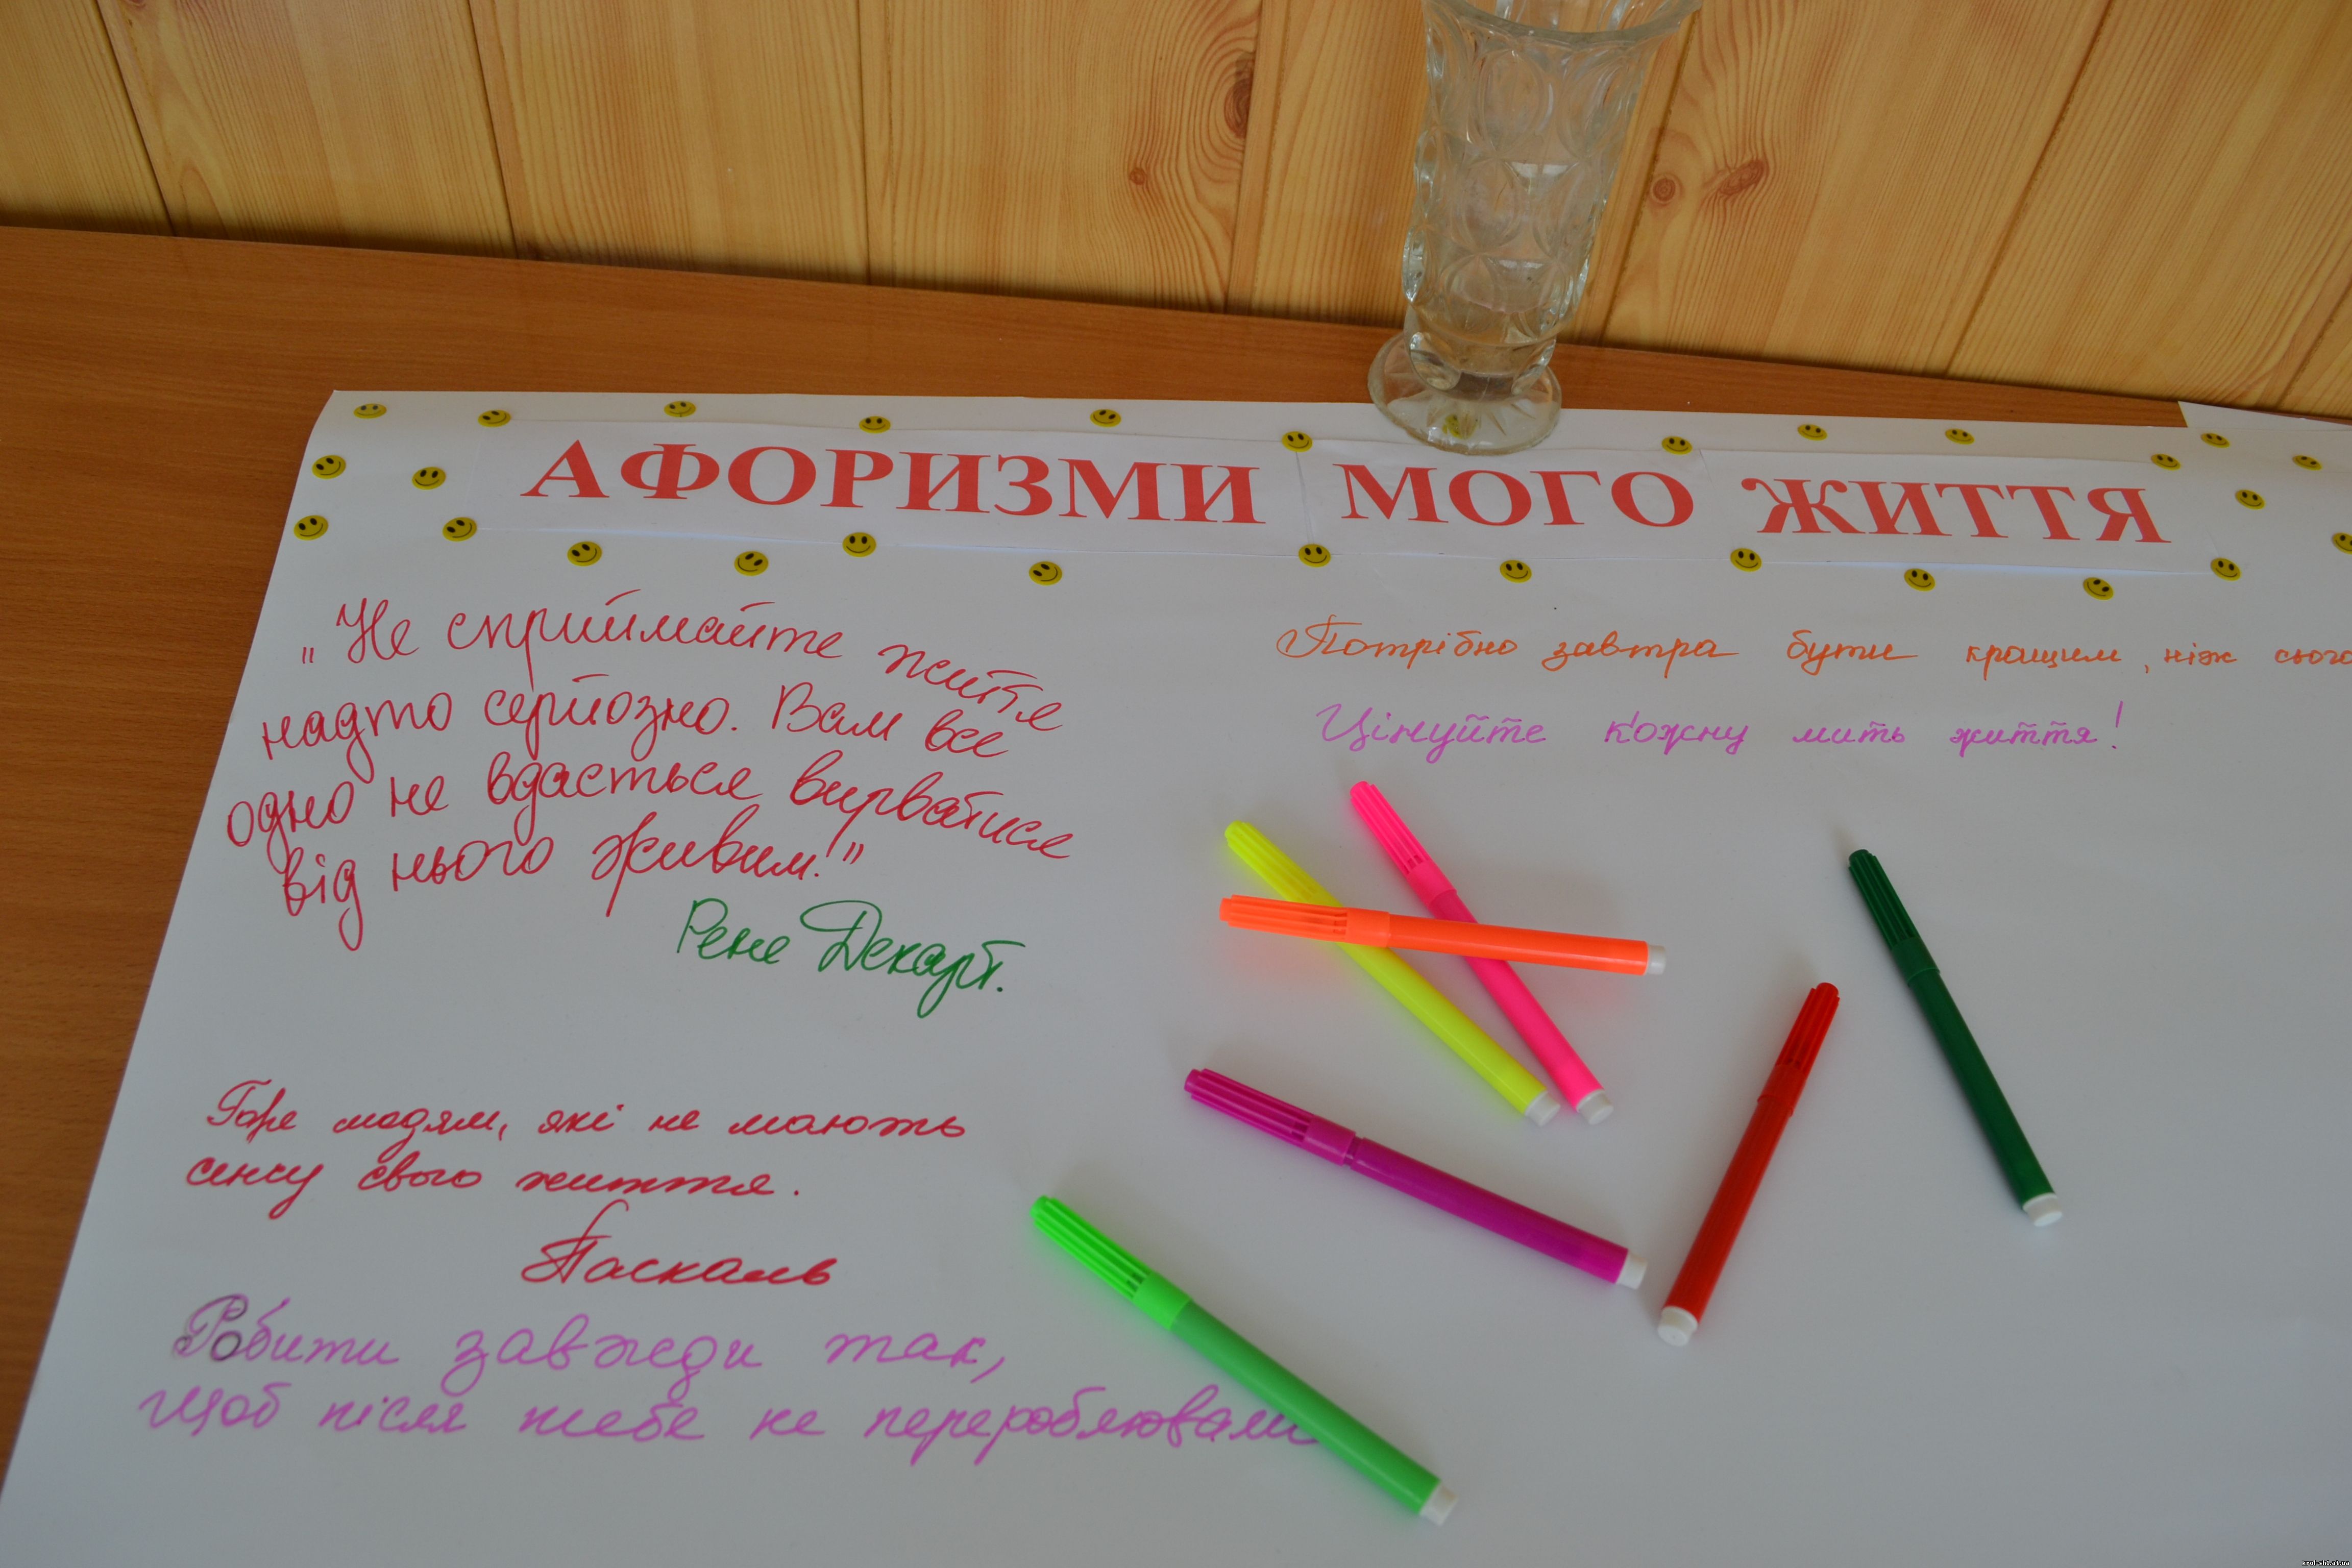 АФОРИЗМИ МОГО ЖИТТЯ
„Не сприймайте життя
надто серйозно. Вам все
одно не вдасться вирватися
від нього живим!”
Рене Декарт.
Горе людям, які не мають
сенсу свого життя.
Паскаль
Робити завжди так,
щоб після тебе не перероблювали
Потрібно завтра бути кращим, ніж сього
Цінуйте кожну мить життя!